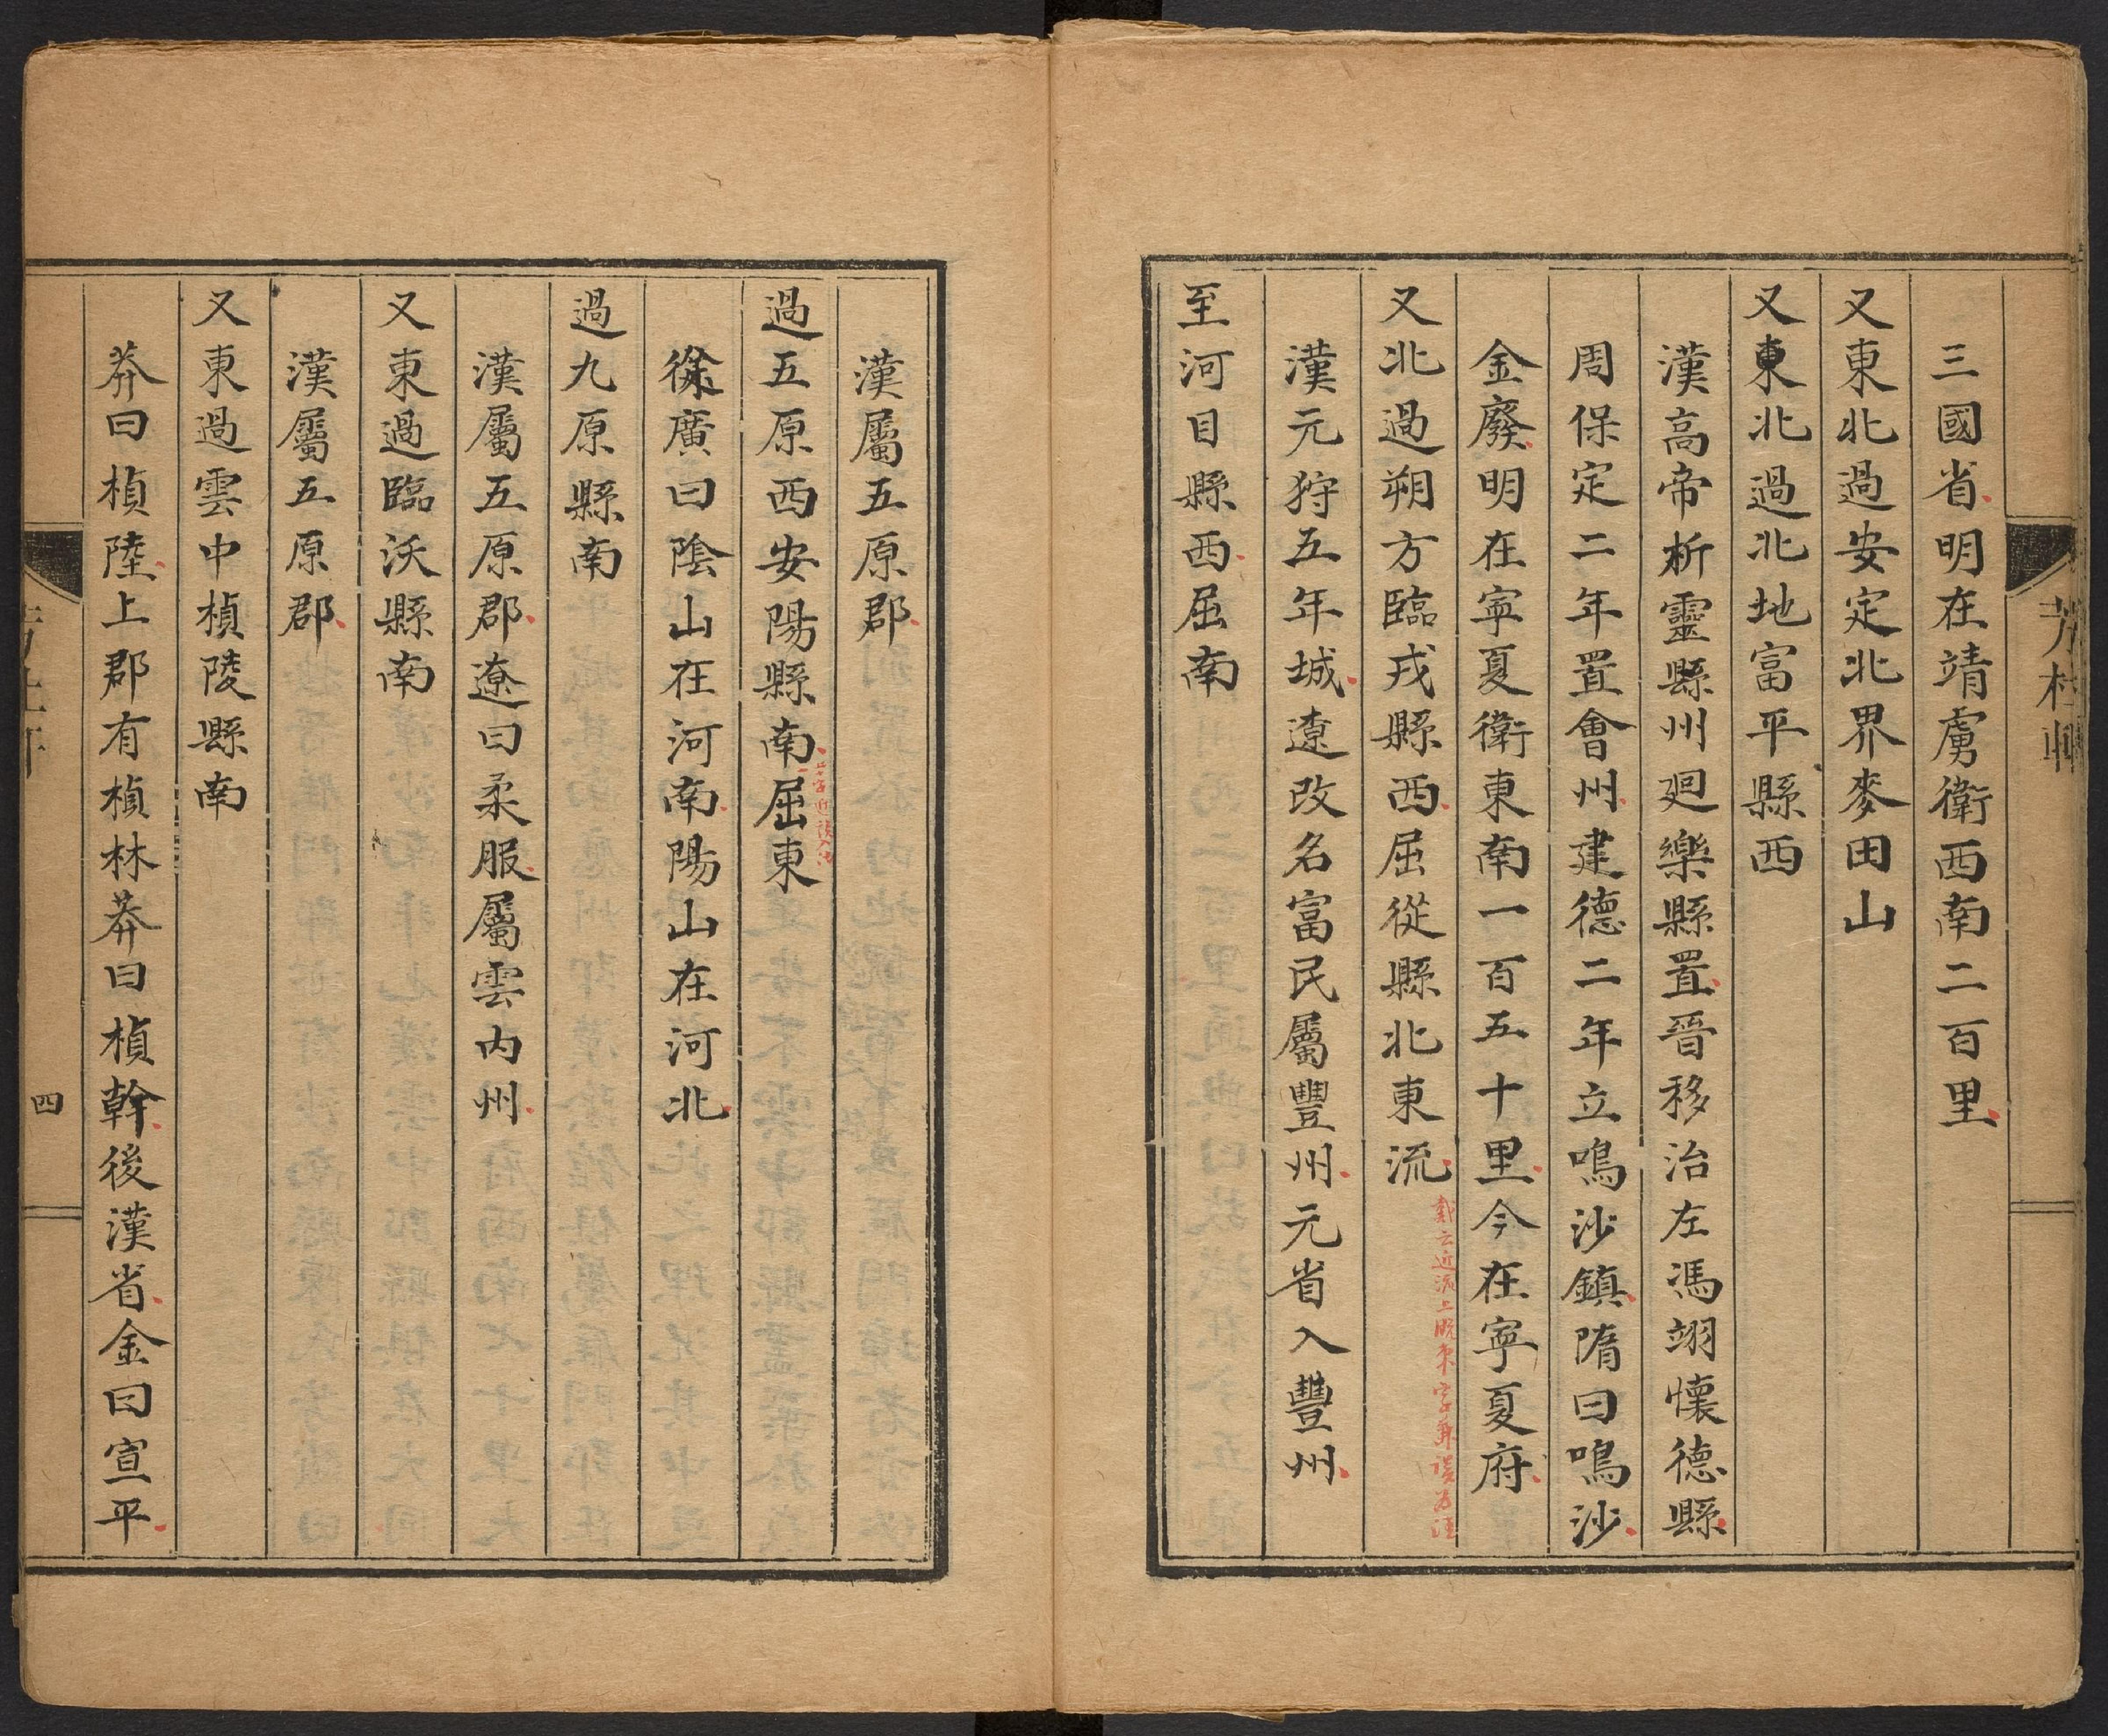 三國省明在靖虜衛西南二百里
又東北過安定北界麥田山
又東北過北地富平縣西
漢高帝析靈縣州廻樂縣置晉移治左馮翊懷德縣
周保定二年置會州建德二年立鳴沙鎮隋曰鳴沙
金廢明在寧夏衛東南一百五十里今在寧夏府
又北過朔方臨戎縣西屈從縣北東流
戴云近流上脫東字
漢元狩五年城遼改名富民屬豐州元省入豐州
至河目縣西屈南
漢屬五原郡
過五原西安陽縣南屈東
徐廣曰陰山在河南陽山在河北
過九原縣南
漢屬五原郡遼曰柔服屬雲內州
又東過臨沃縣南
漢屬五原郡
又東過雲中楨陵縣南
莽曰楨陸上郡有楨林莽曰楨幹後漢省金曰宣平
四